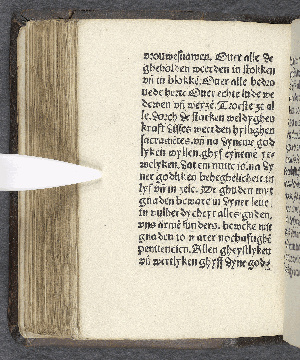 vrouwesnamen. Ouer alle de
gheholden werden in stokken
vn̄ in blokkē. Ouer alle bedro
uede herte Ouer echte lude we
dewen vn̄ weyzē. Troeste ze al
le. dorch de starken weldyghen
kraft disses werden hylighen
sacramētes. vn̄ na dyneme god
lyken wyllen. ghyf eyneme ye
welyken. dat em nutte is. na dy
ner godliken behegheliche it in
lyf vn̄ in zele. De ghuden myt
gnaden beware in dyner leue.
in vulherdycheyt alles guden,
vns arme sunders. bewese mit
gnaden to ware nochaftighe
penitencien. Allen gheystlyken
vn̄ wertlyken ghyff dyne gods